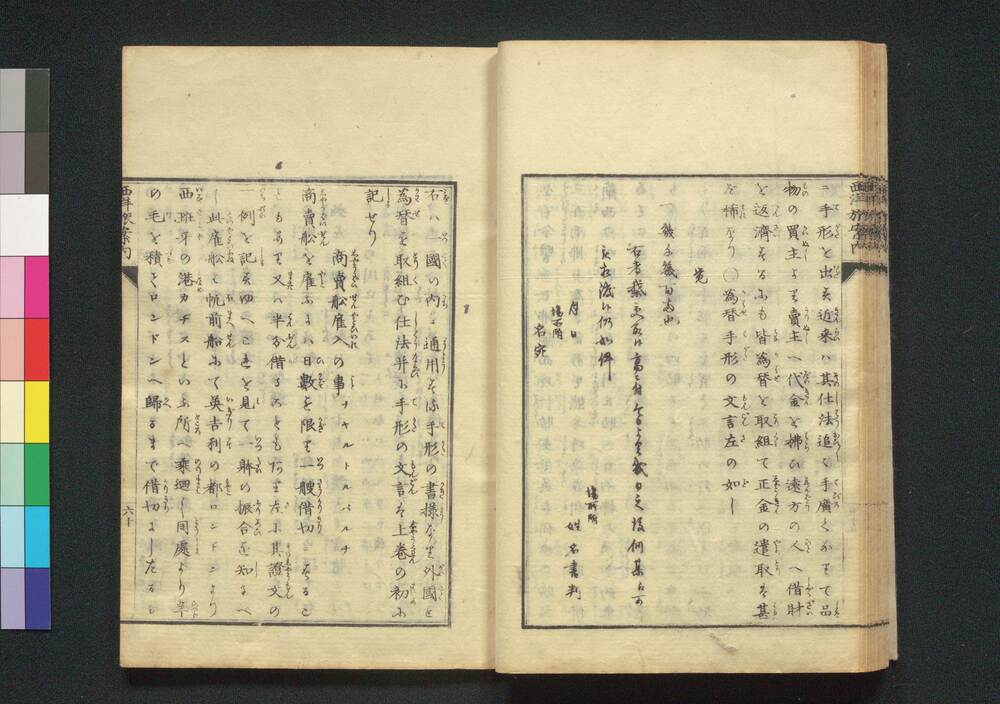 ニ手形を出す近来ハ其仕法追々手廣くなりて品
物の買主より賣主へ代金を拂ひ遠方の人へ借財
を返濟するにも皆為替を取組て正金の遣取は甚
を稀なり〇為替手形の文言左の如し
覚
一 幾千幾百両也
月 日
場所附 姓 名 書判
場所附
名宛
西洋旅案内
右ハ一國の内ニ通用する手形の書様なり外國と
為替を取組む仕法并に手形の文言は上巻の初に
記せり
商賣舩雇入の事 チャルトルパルチ
商賣舩を雇ふにハ日數を限り一艘借切になるこ
ともあり又ハ半分借ることもあり左に其證文の
一例を記す四へこれを見て一躰の振合を知るへ
し此雇舩ハ帆前船にて英吉利の都ロンドンより
西班牙の港カヂスといふ所へ乘廻し同處より羊
の毛を積てロンドンへ歸るまで借切にしたるな
西洋旅案内
六十